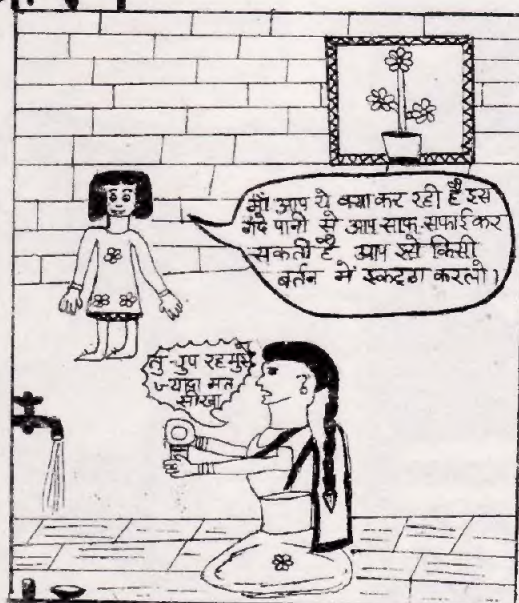 माँ आप ये क्या कर रही है इस
गंदे पानी से आप साफ-सफाई कर
सकती है आप इसे किसी
बर्तन में इकट्ठा करलो।
तु चुप रह मुझे
ज्यादा मत
सीखा